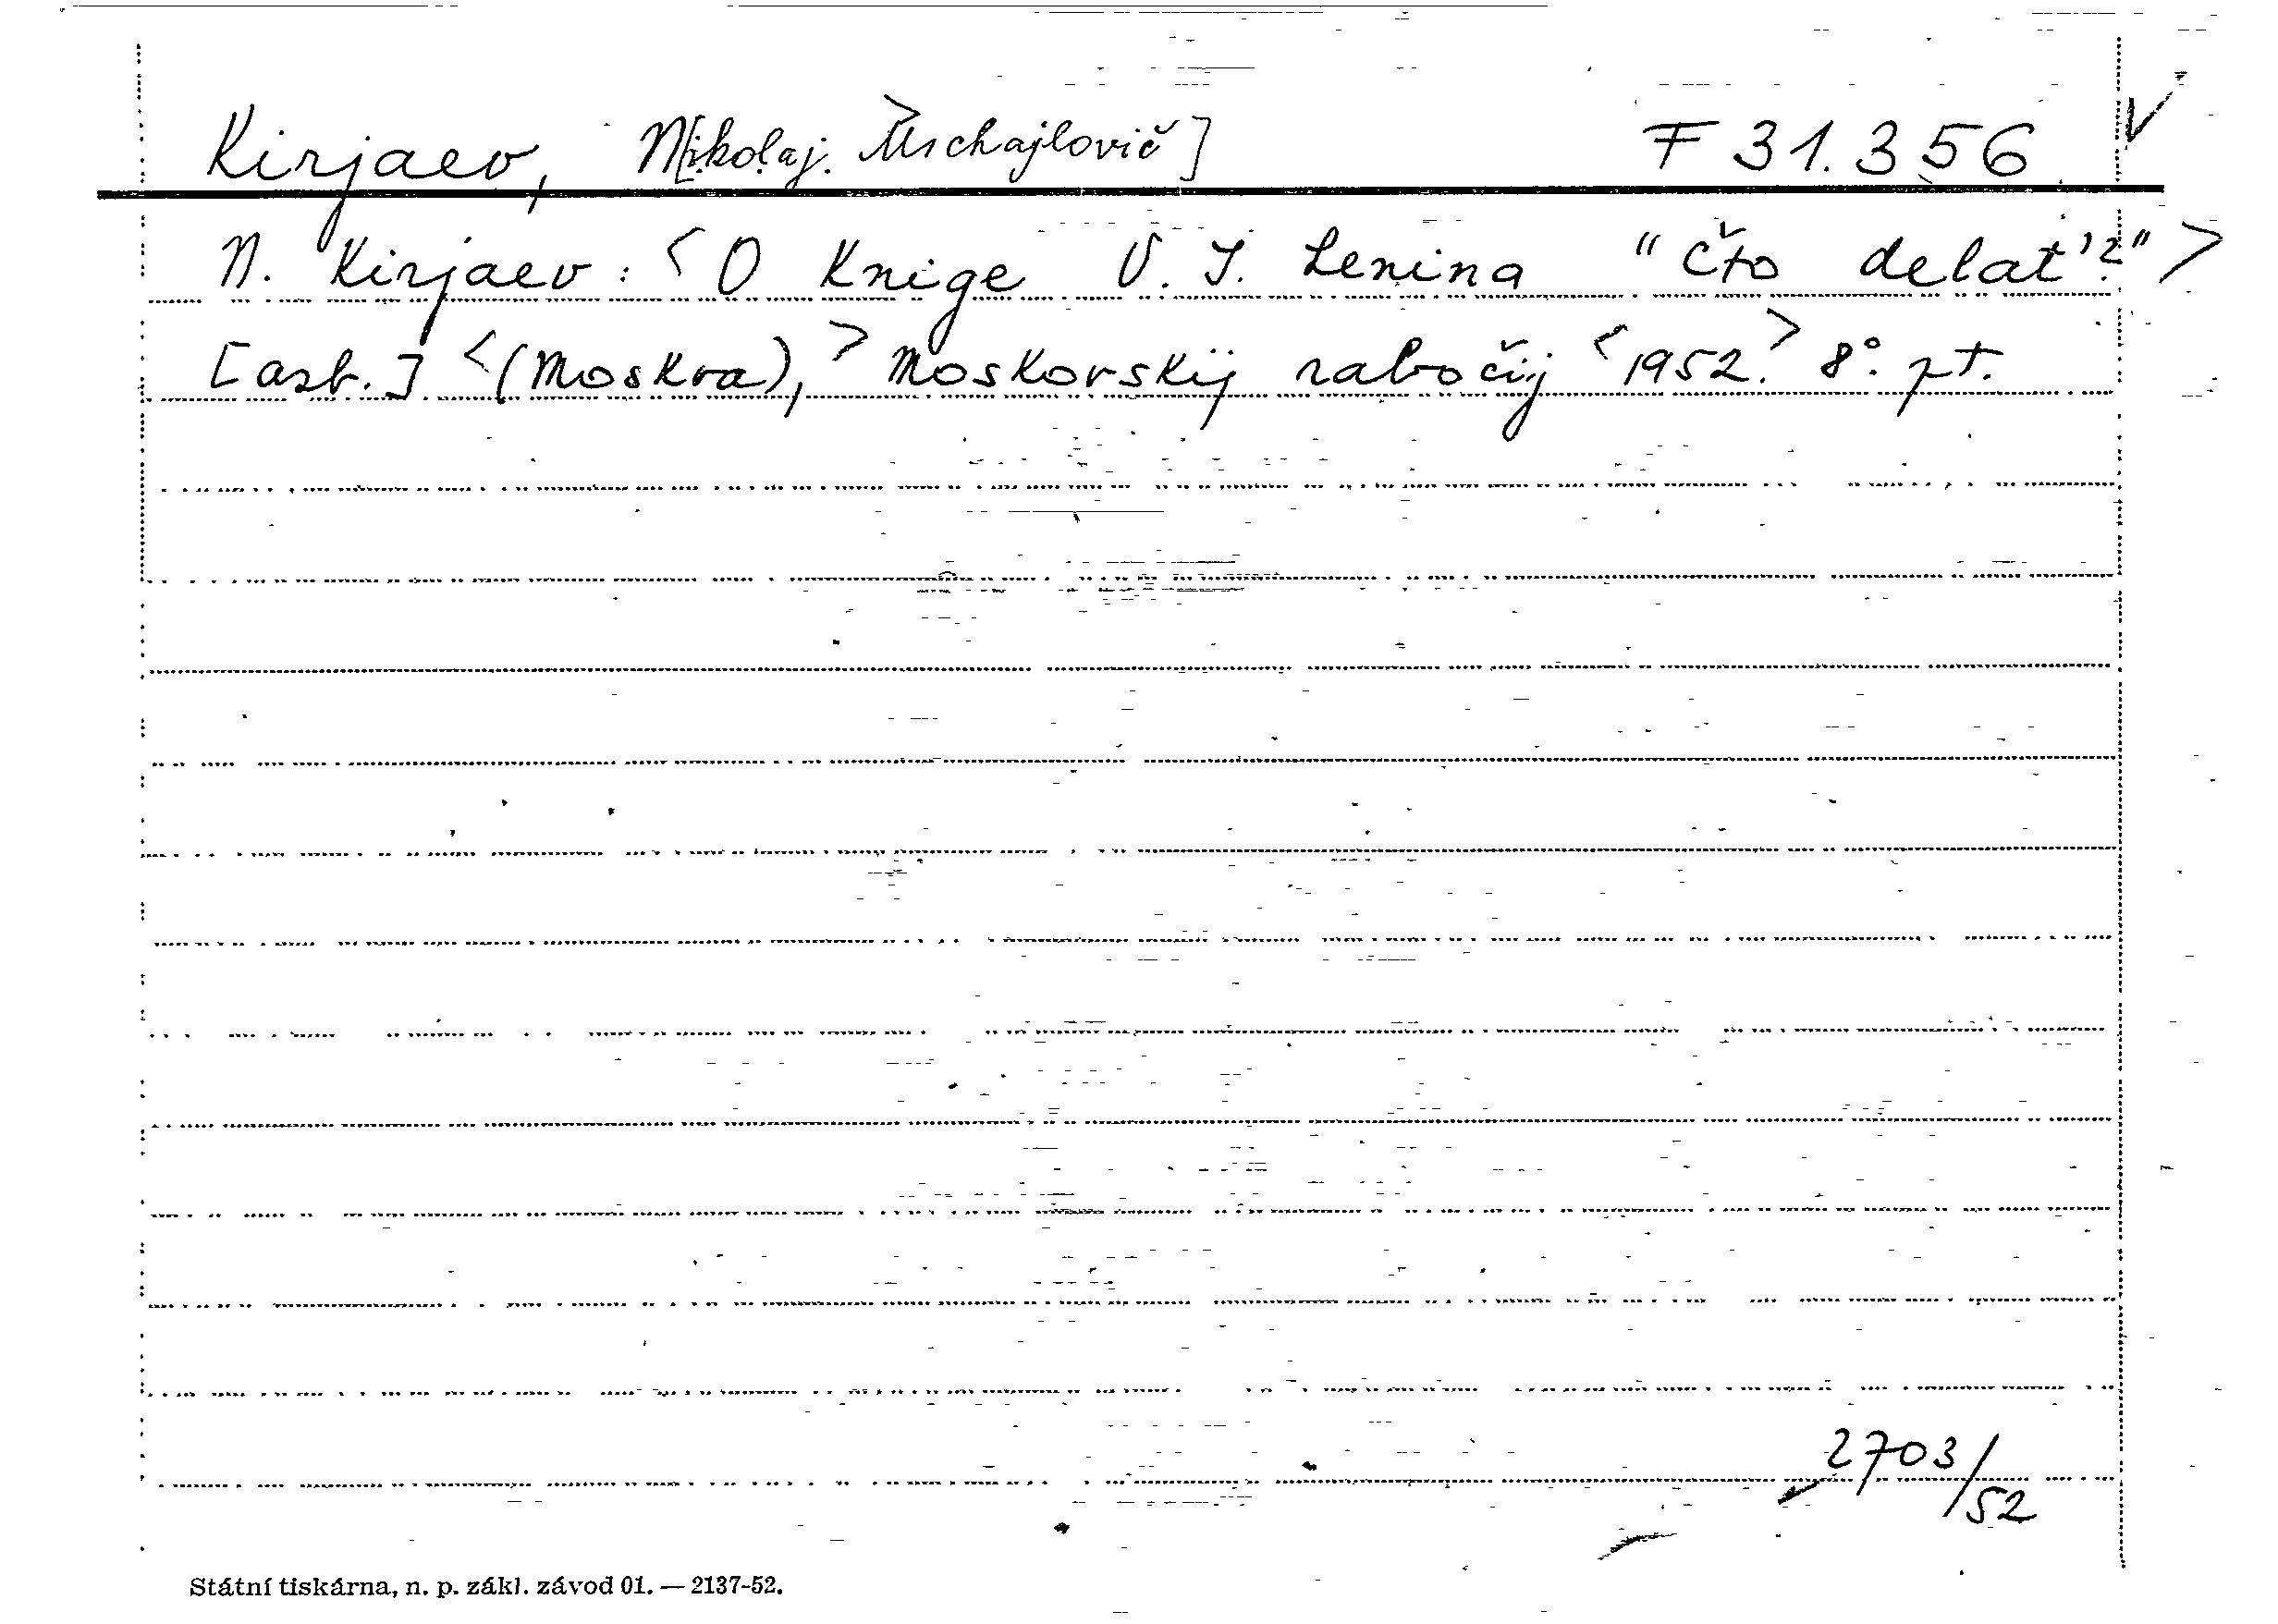 Kirjaev, N[ikolaj Michajlovič] F 31.356 V
N. Kirjaev: <O Knige V. I. Lenina "Čto delat'?">
[azb.] <(Moskva),> Moskovskij rabočij <1952.> 8°. pt.
2703/52
Státní tiskárna, n. p. zákl. závod 01. — 2137-52.